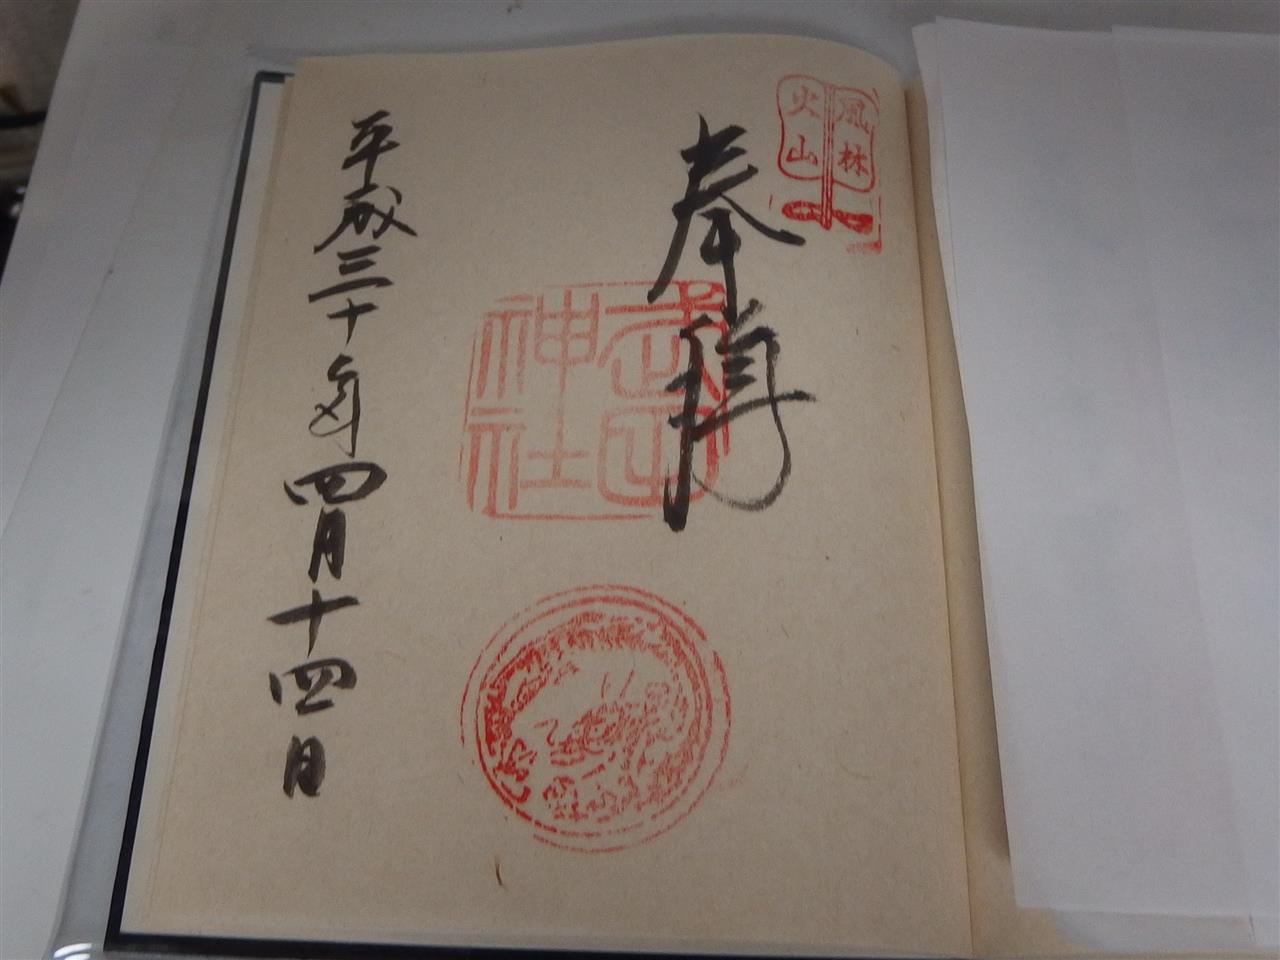 風林
火山
奉拝
武田
神社
平成三十年四月十四日